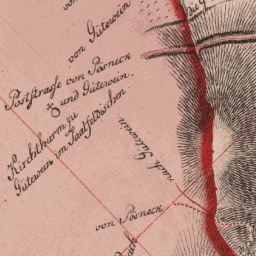 von
von Gütewein
Poststrasse von Pösneck
und Gütewein.
Kirchthurm zu
Gütewein im Saalfeldischen
nach Gütewein
von Pösneck
nach